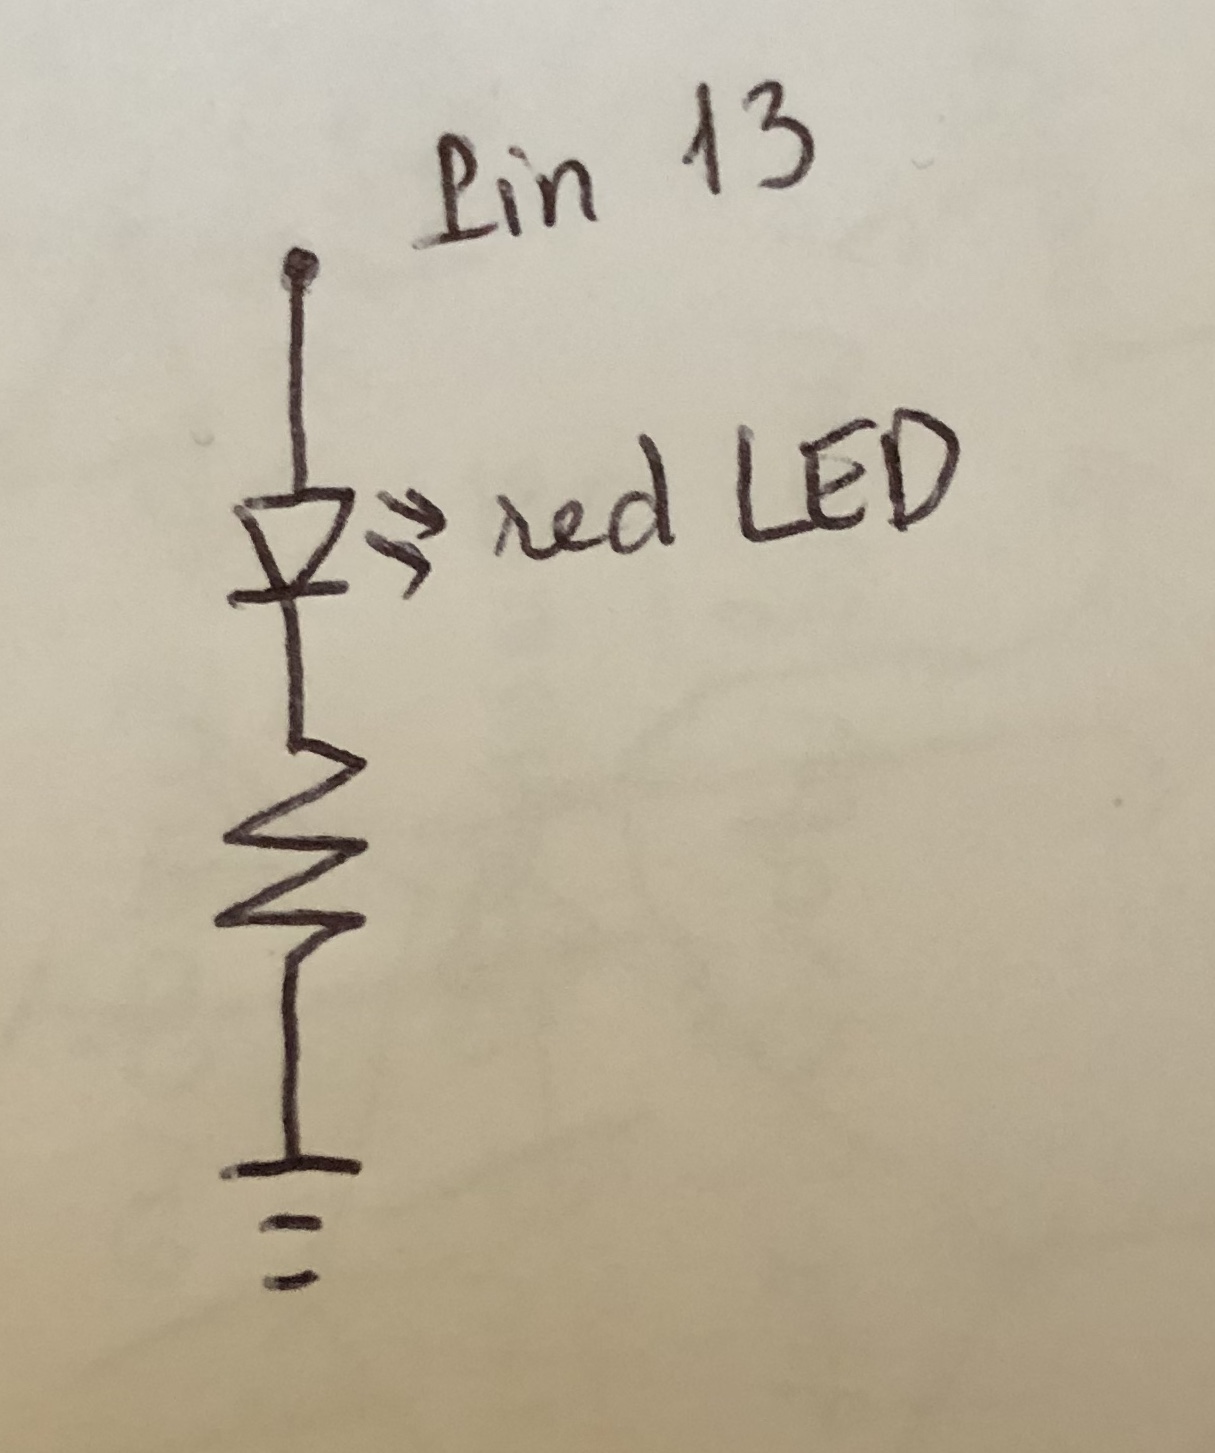 Pin 13
red LED